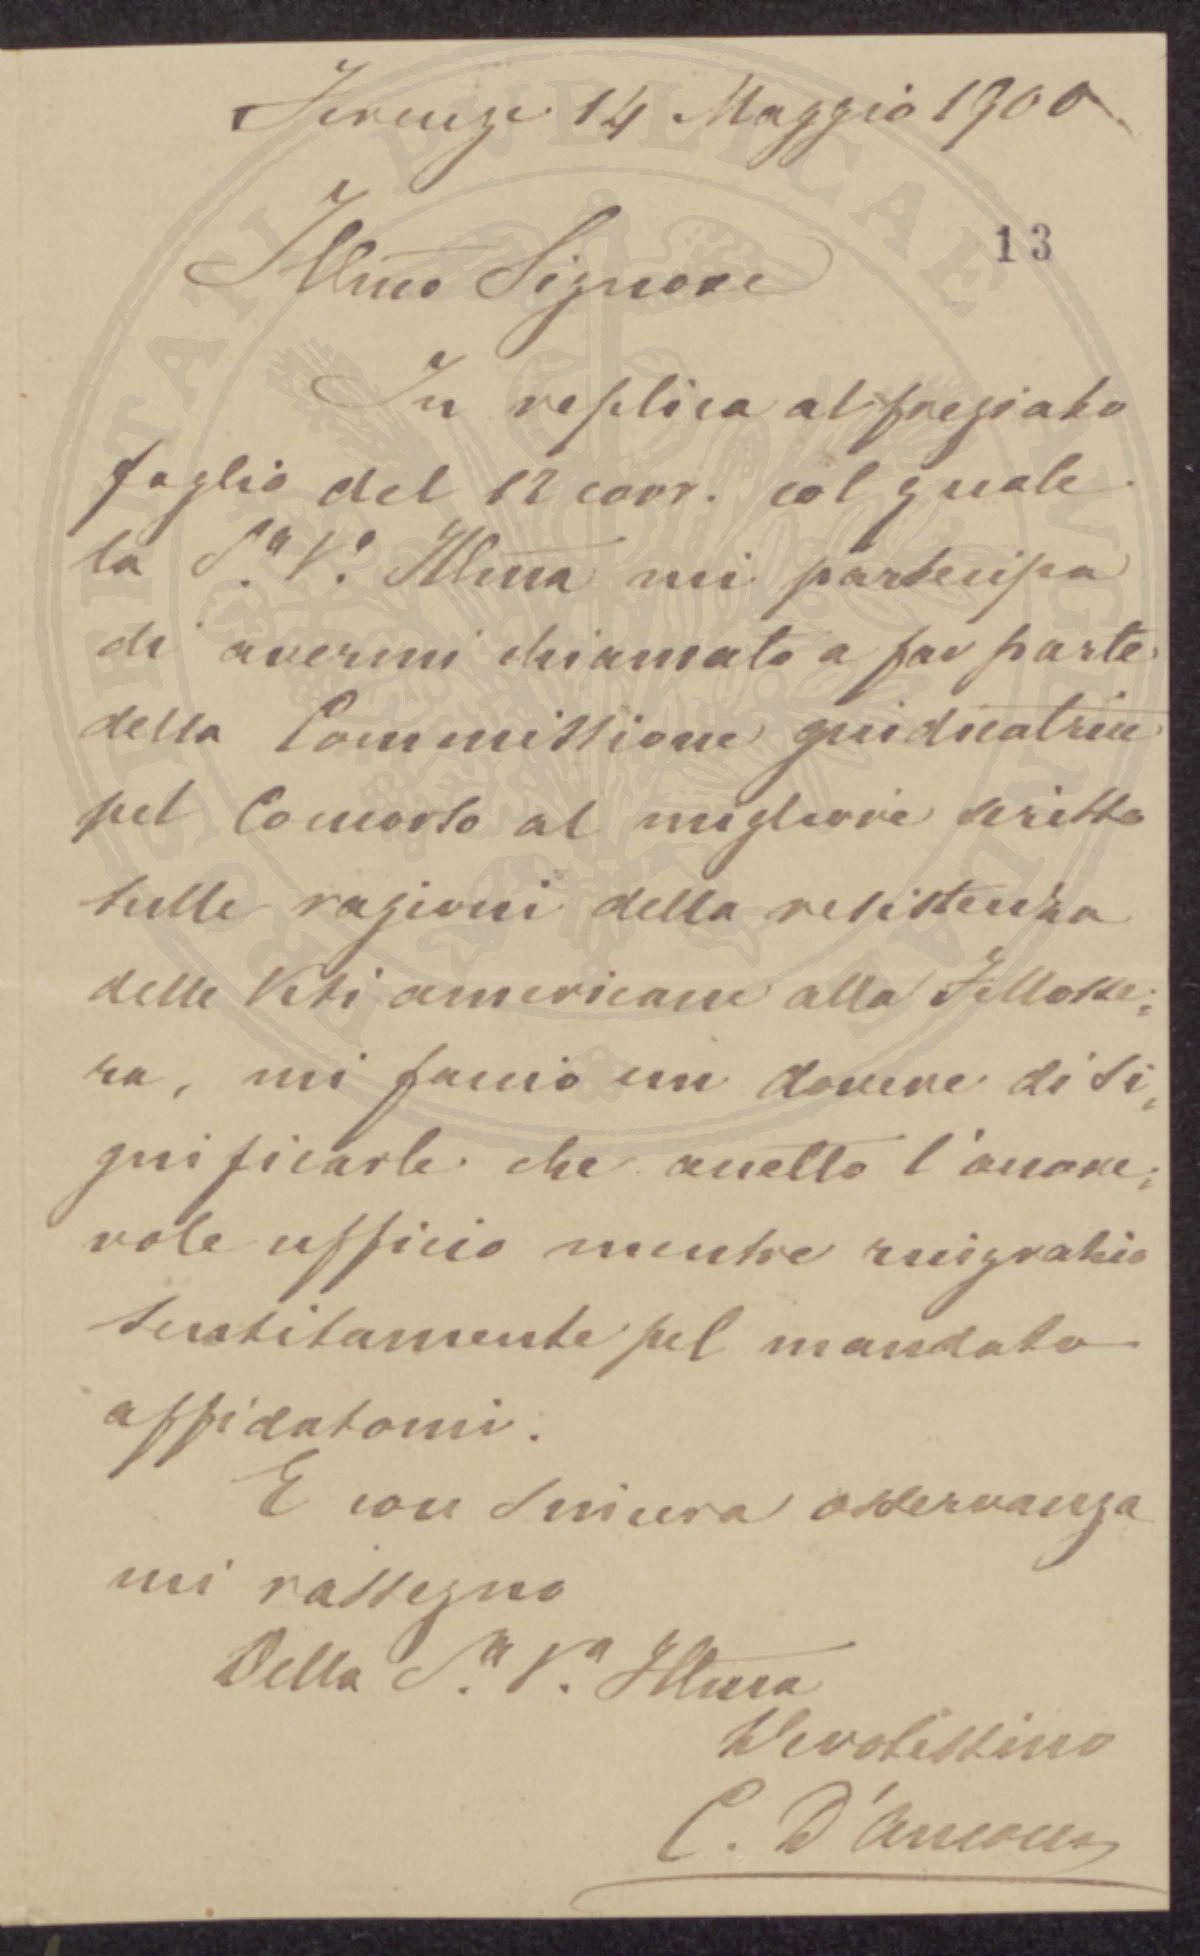 Firenze 14 Maggio 1900
13
Illmo Signore
In replica al pregiato
foglio del 12 corr. col quale
la S.a V.a Illma mi partecipa
di avermi chiamato a far parte
della Commissione giudicatrice
pel Concorso al migliore scritto
sulle ragioni della resistenza
delle Viti americane alla Fillosse=
ra, mi faccio un dovere di si=
gnificarle che accetto l'onore=
vole ufficio mentre ringrazio
sentitamente pel mandato
affidatomi.
E con sincera osservanza
mi rassegno
Della S.a V.a Illma
Devotissimo
C. D'Ancona